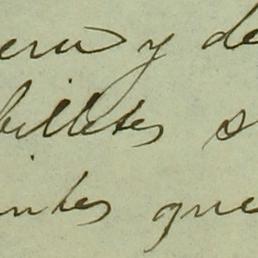 era y de
billetes s
intes que